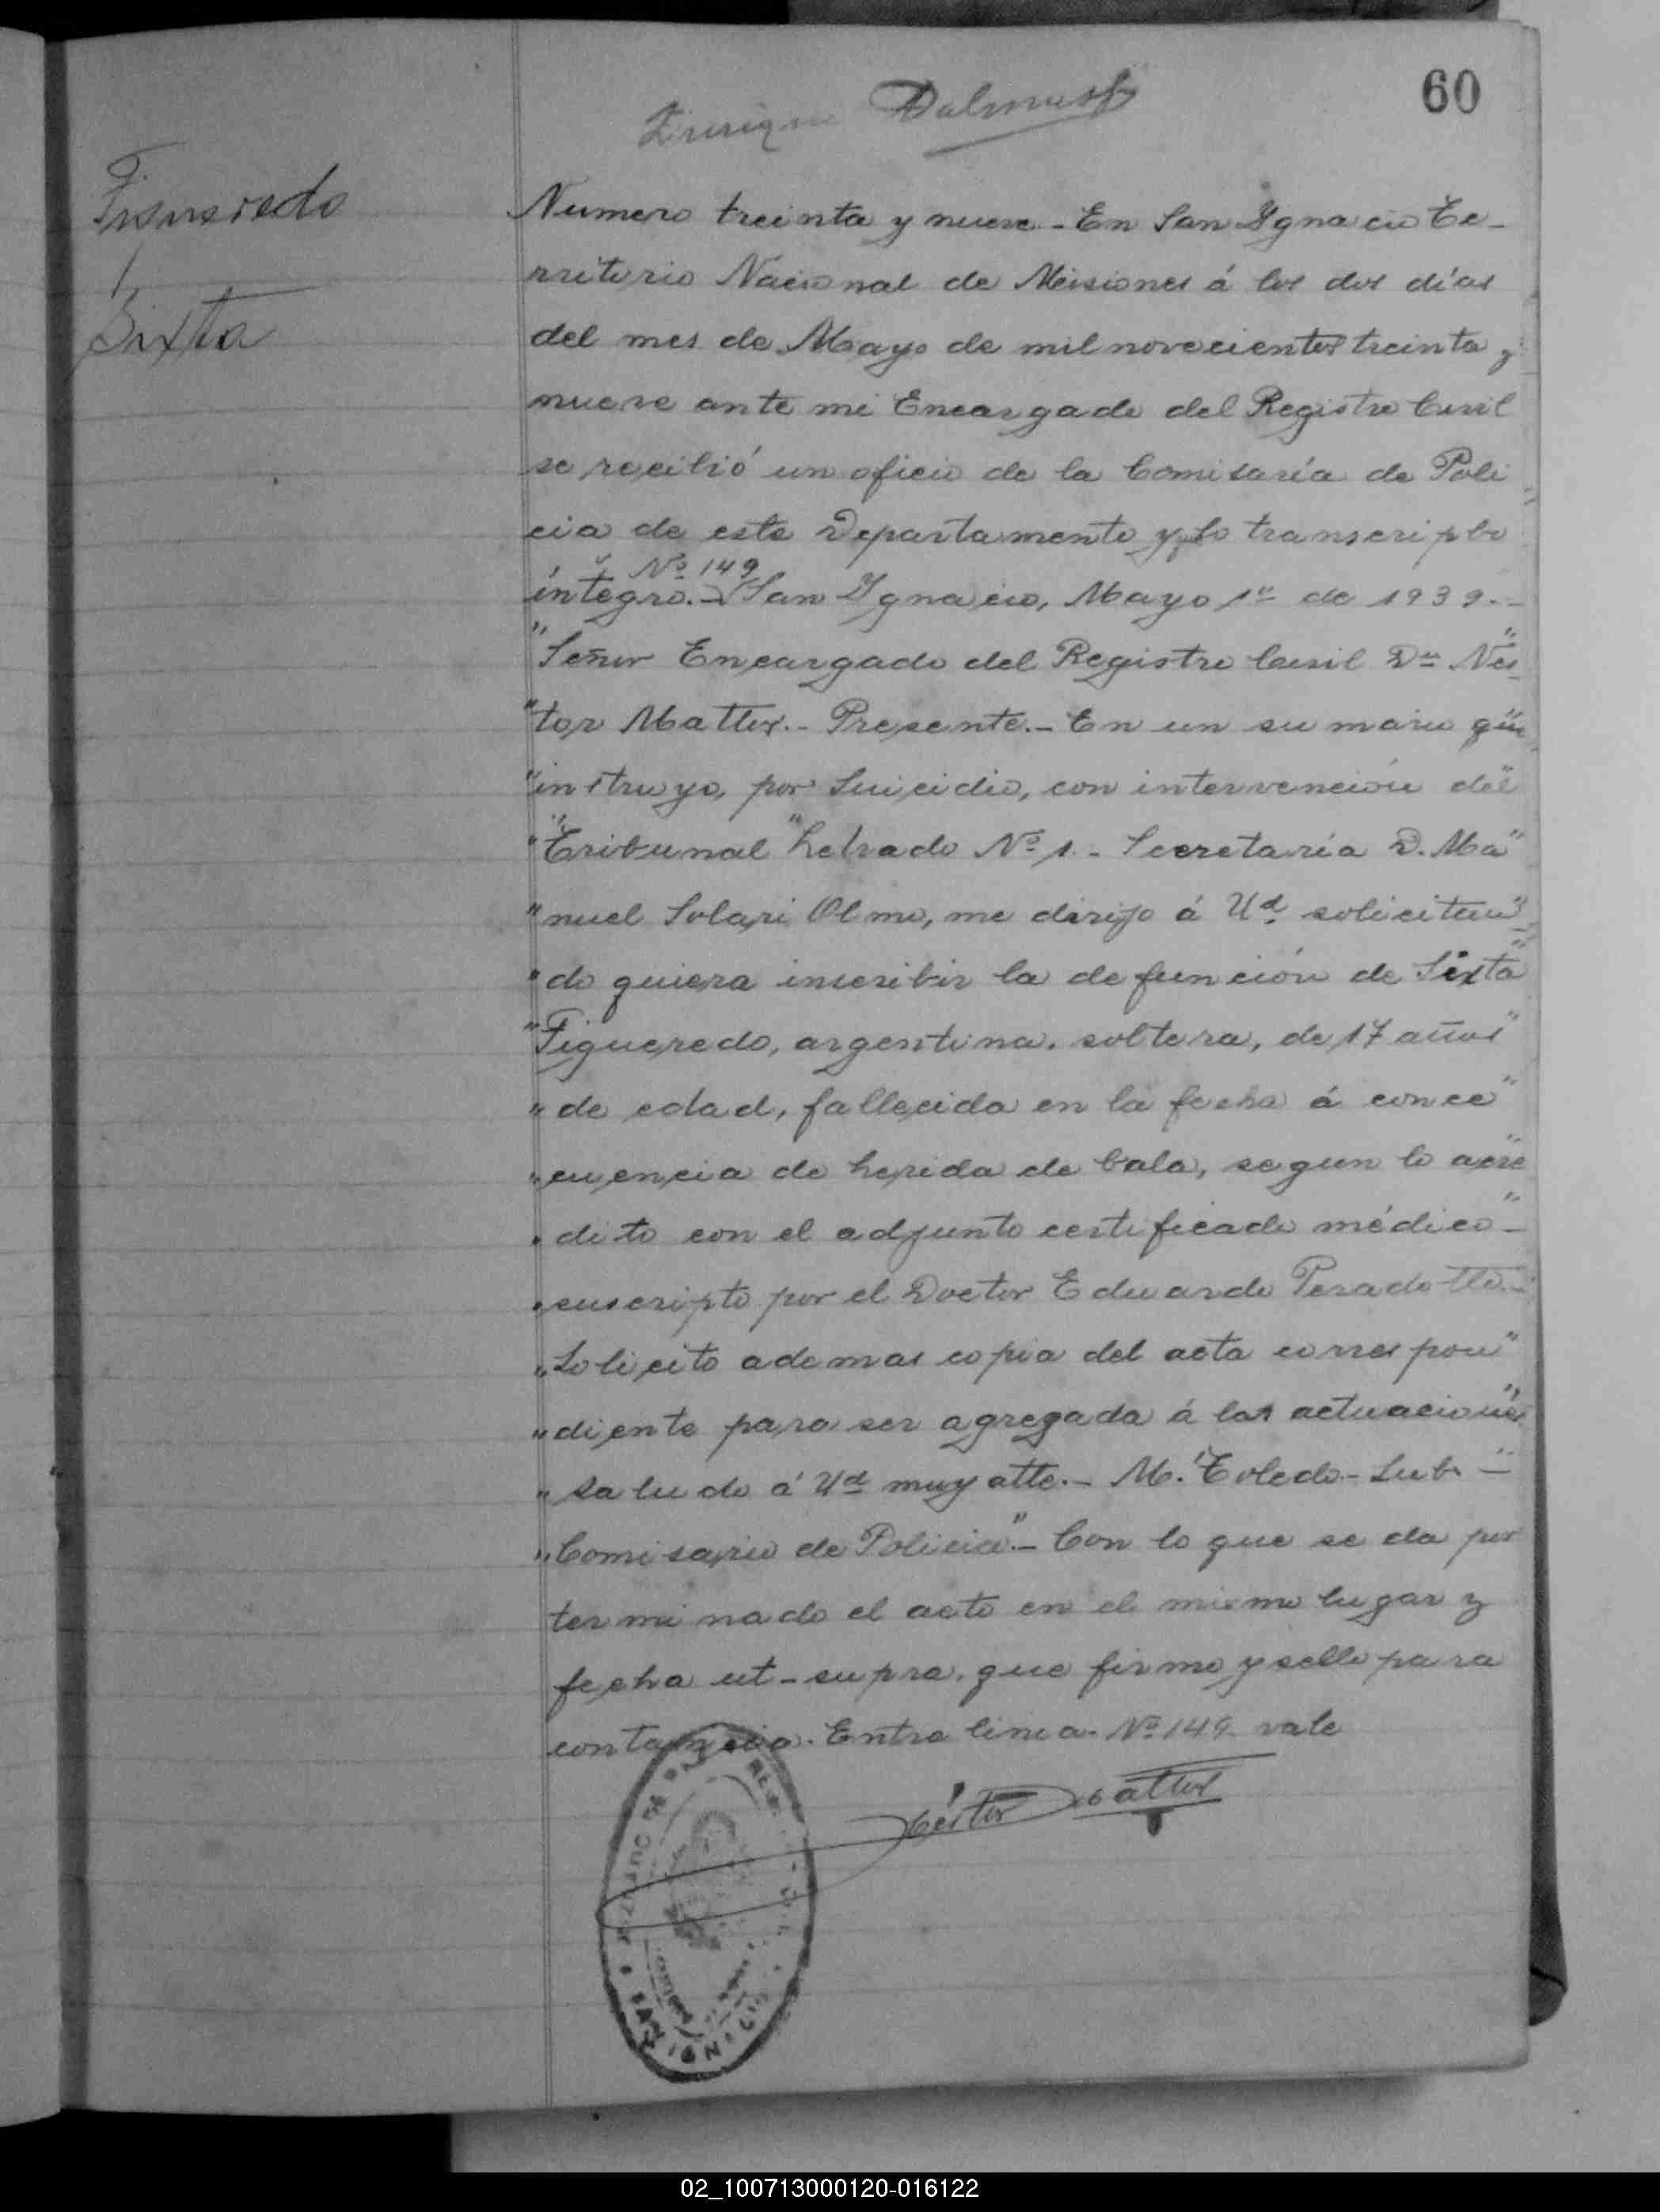 60
Enrique Dalmass
Figueredo
Sixta
Numero treinta y nueve - En San Ygnacio Te-
rritorio Nacional de Misiones á los dos días
del mes de Mayo de mil novecientos treinta y
nueve ante mi Encargado del Registro Civil
se recibió un oficio de la Comisaría de Poli
cia de este Departamento y lo transcripbo
Nº 149
íntegro.- San Ygnacio, Mayo 1º de 1939.-
"Señor Encargado del Registro Civil Dn Nes"
"tor Mattos.- Presente.- En un sumario que"
"instruyo, por Suicidio, con intervención del"
"Tribunal "Letrado Nº 1.- Secretaría D. Ma"
"nuel Solari Olmo, me dirijo á Ud. solicitan"
"do quiera inscribir la defunción de Sixta"
"Figueredo, argentina, soltera, de 17 años"
"de edad, fallecida en la fecha á conce"
"cuencia de herida de bala, segun lo acre"
"dito con el adjunto certificado médico"-
"suscripto por el Doctor Eduardo Peradotto.-
"Solicito ademas copia del acta correspon"
"diente para ser agregada á las actuaciones"
"saludo á Ud muy atte.- M. Toledo - Sub -"
"Comisario de Policia".- Con lo que se da por
terminado el acto en el mismo lugar y
fecha ut-supra, que firmo y sello para
contancia. Entre linea - Nº 149 - vale
Néstor Mattos
02_100713000120-016122